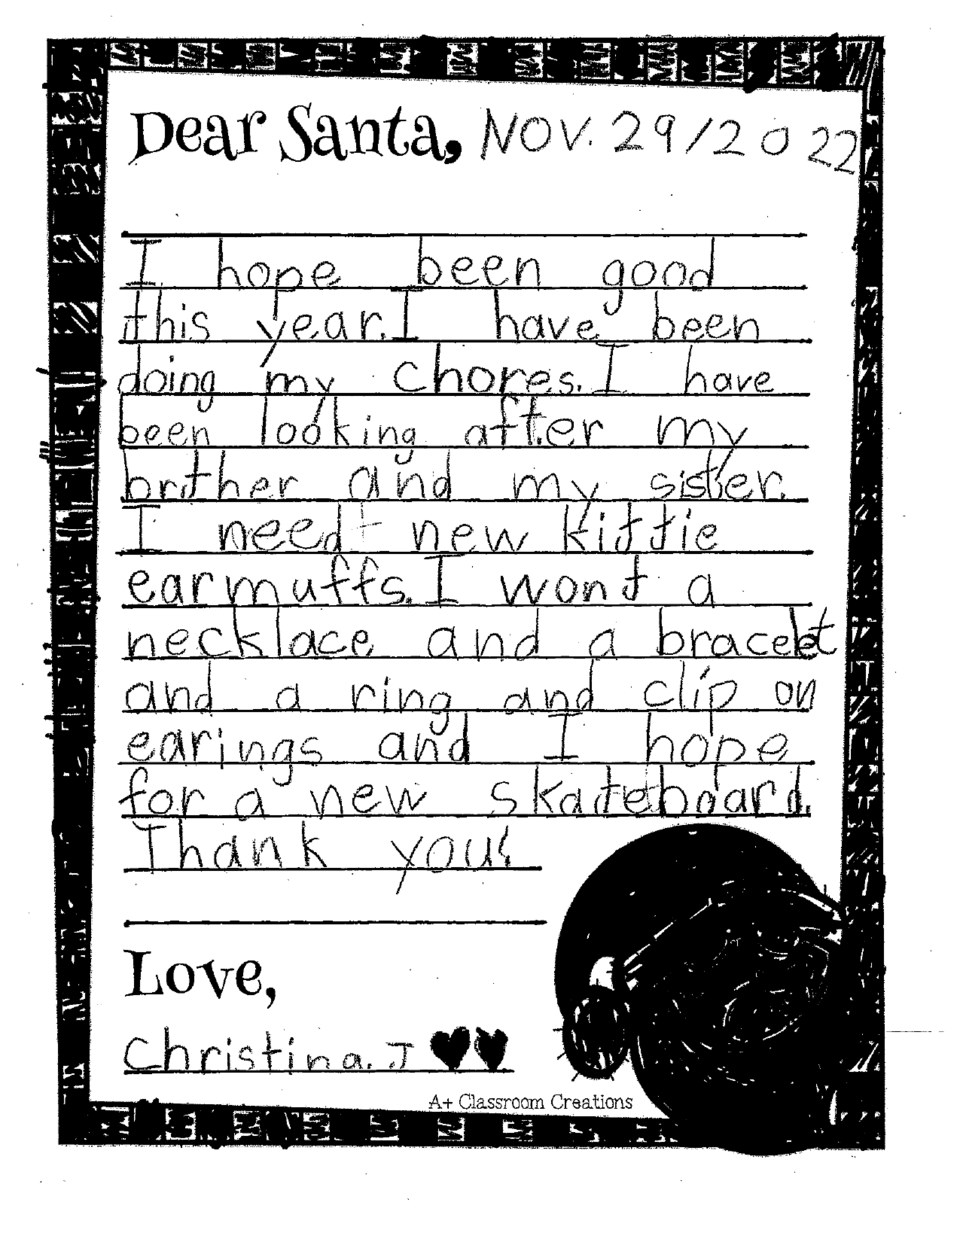 Dear Santa, NOV. 29/2022
I hope been good
this year. I have been
doing my chores. I have
been looking after my
brither and my sister.
I need new kittie
earmuffs. I wont a
necklace and a bracelet
and a ring and clip on
earings and I hope
for a new skateboard.
Thank you!
Love,
Christina. J
A+ Classroom Creations